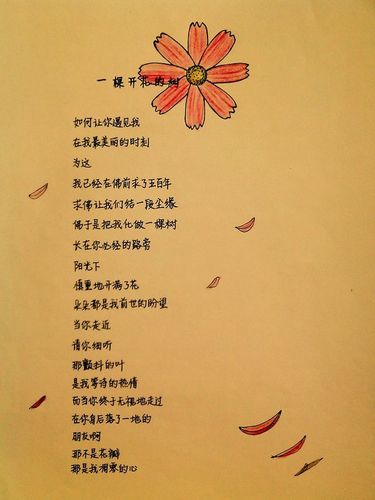 一棵开花的树
如何让你遇见我
在我最美丽的时刻
为这
我已经在佛前求了五百年
求佛让我们结一段尘缘
佛于是把我化做一棵树
长在你必经的路旁
阳光下
慎重地开满了花
朵朵都是我前世的盼望
当你走近
请你细听
那颤抖的叶
是我等待的热情
而当你终于无视地走过
在你身后落了一地的
朋友啊
那不是花瓣
那是我凋零的心